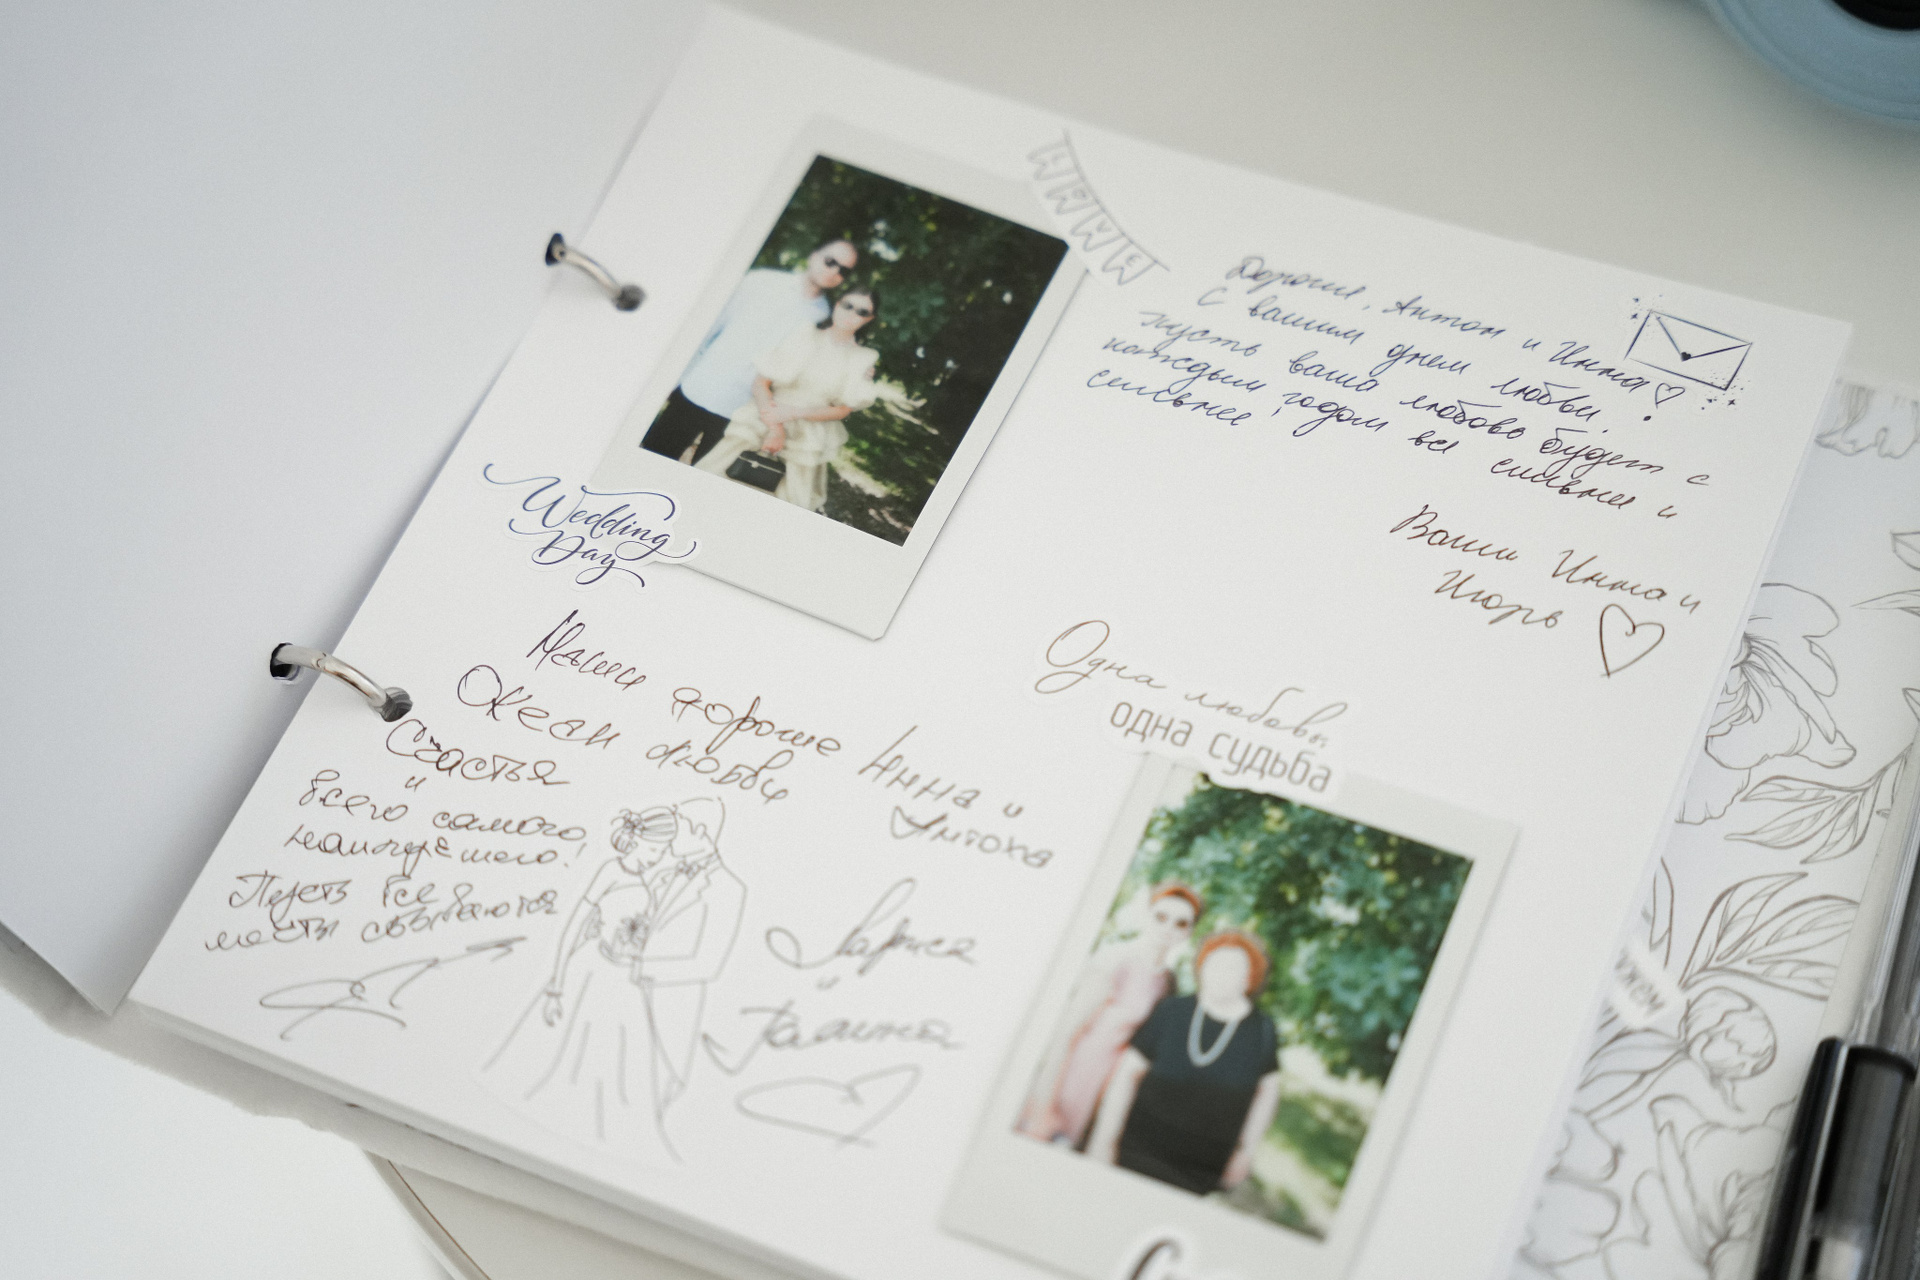 Дорогие, Антон и Инна
С вашим днем любви!
пусть ваша любовь будет с
каждым годом все сильнее и
сильнее!
Ваши Инна и
Игорь
Wedding
Day
Наши дорогие Инна и
Антоха
Океан любви
Счастья
и
Всего самого
наилучшего!
Пусть все
мечты сбываются
Лариса
и
Галина
Одна любовь,
одна судьба